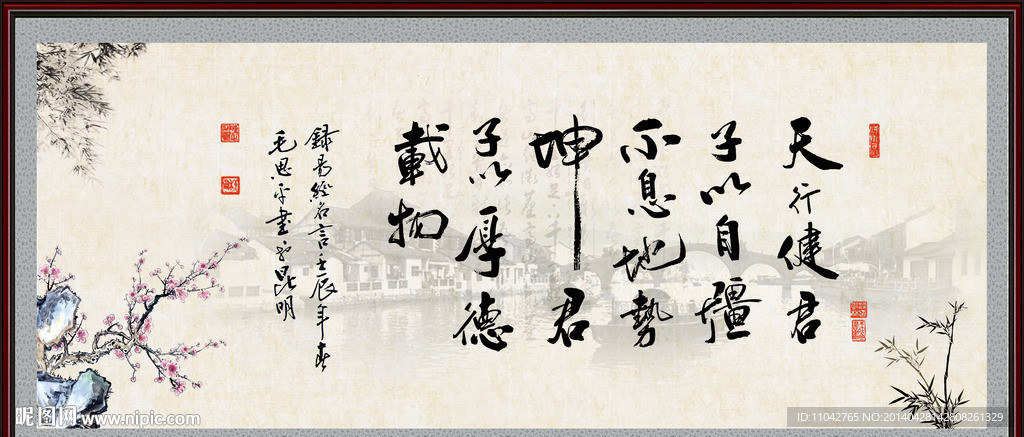 天行健君
子以自疆
不息地勢
坤君
子以厚德
載物
録易經名言壬辰年春
毛思平書於昆明
昵图网 www.nipic.com
ID:11042765 NO:20140428142608261329